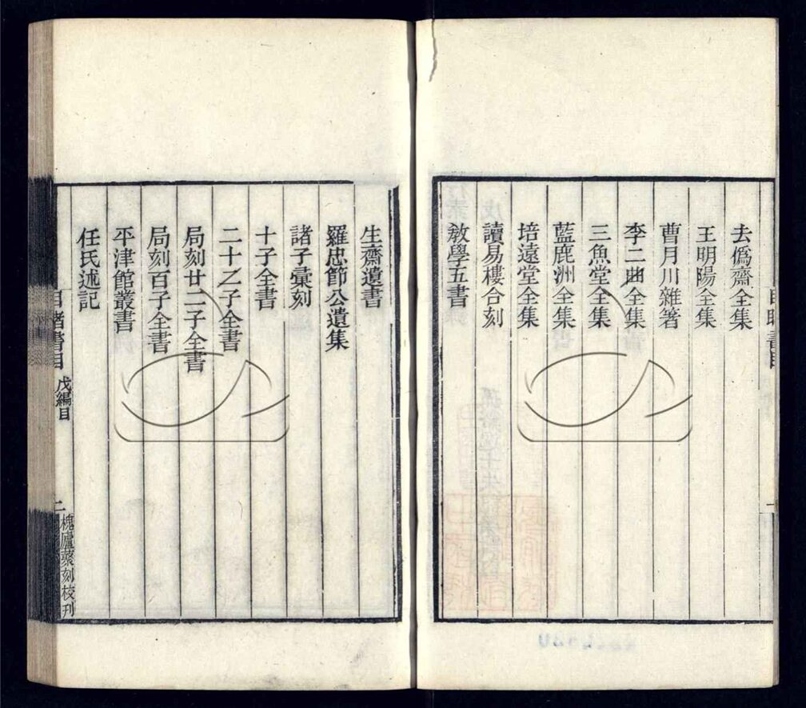 去僞齋全集
王明陽全集
曹月川雜著
李二曲全集
三魚堂全集
藍鹿洲全集
培遠堂全集
讀易樓合刻
敎學五書
生齋遺書
羅忠節公遺集
諸子彙刻
十子全書
二十乙子全書
局刻廿二子全書
局刻百子全書
平津館叢書
任氏述記
目睹書目
戊編目
二
槐廬叢刻校刊